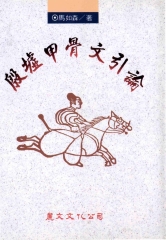 ◎馬如森／著
殷墟甲骨文引論
麗文文化公司